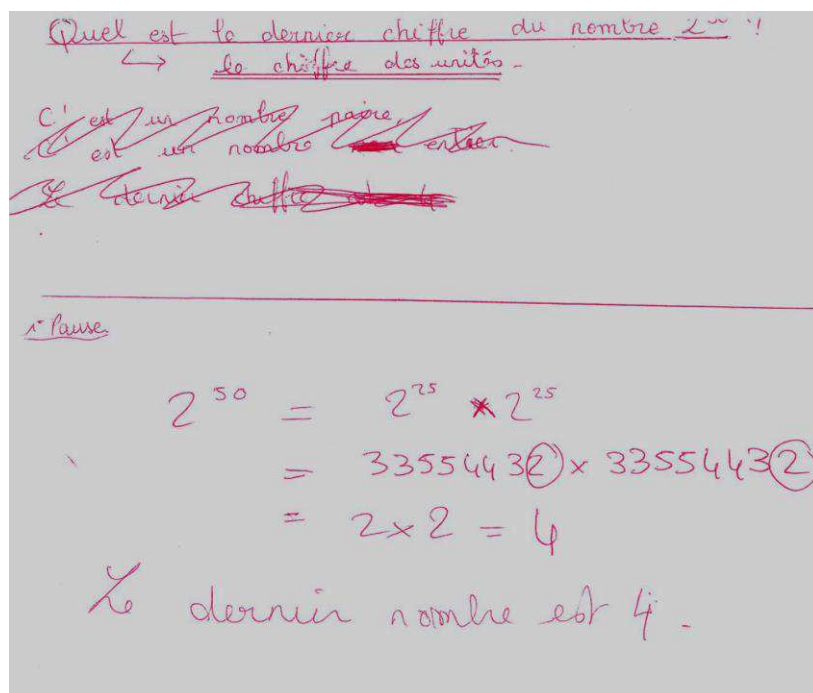 Quel est le dernier chiffre du nombre 2 ?
↳ le chiffre des unités.
C'est un nombre paire.
C'est un nombre entier.
Le dernier chiffre
1- Pause
2^50 = 2^25 * 2^25
= 33554432 × 33554432
= 2×2 = 4
Le dernier nombre est 4.